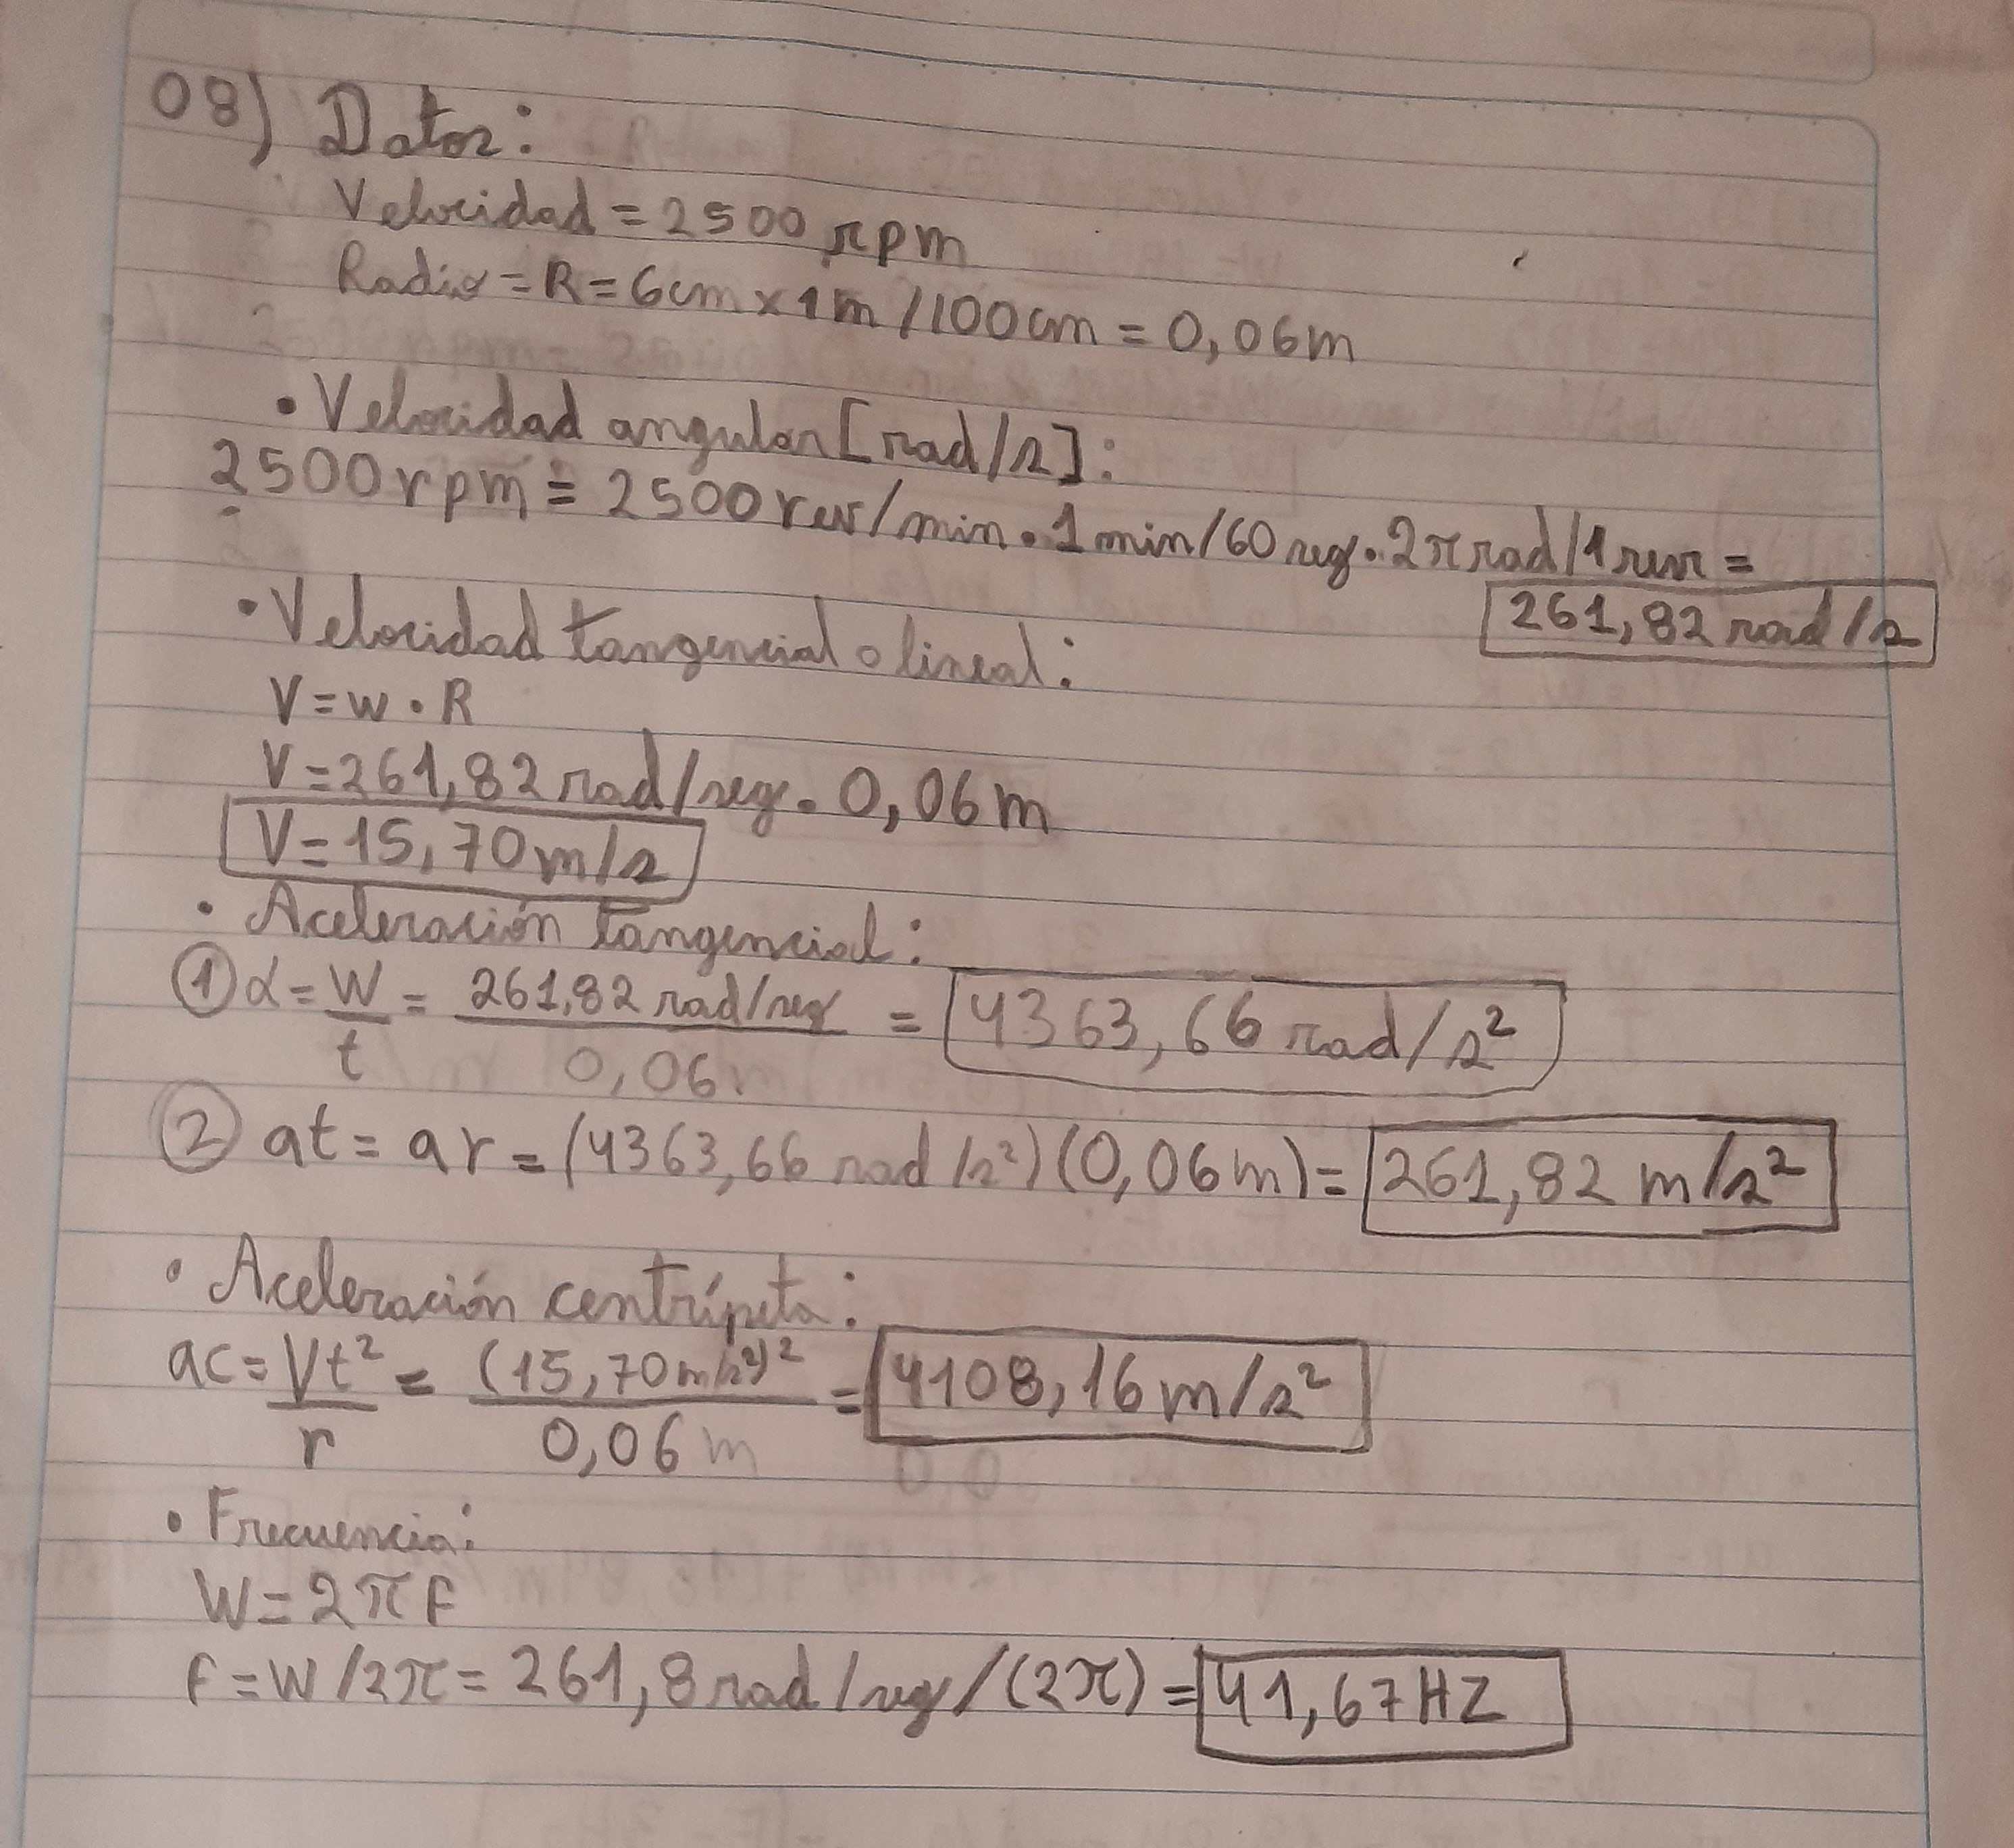 08) Datos:
Velocidad = 2500 rpm
Radio = R = 6cm x 1m /100cm = 0,06m
• Velocidad angular [rad/s]:
2500 rpm = 2500 rev/min • 1 min/60 seg • 2π rad/1 rev =
261,82 rad/s
• Velocidad tangencial o lineal:
V = w • R
V = 261,82 rad/seg • 0,06 m
V = 15,70 m/s
• Aceleración tangencial:
① α = w/t = 261,82 rad/seg / 0,06 = 4363,66 rad/s²
② at = ar = (4363,66 rad/s²)(0,06m) = 261,82 m/s²
• Aceleración centrípeta:
ac = Vt²/r = (15,70 m/s²)² / 0,06 m = 4108,16 m/s²
• Frecuencia:
W = 2πF
F = W/2π = 261,8 rad/seg/(2π) = 41,67 HZ